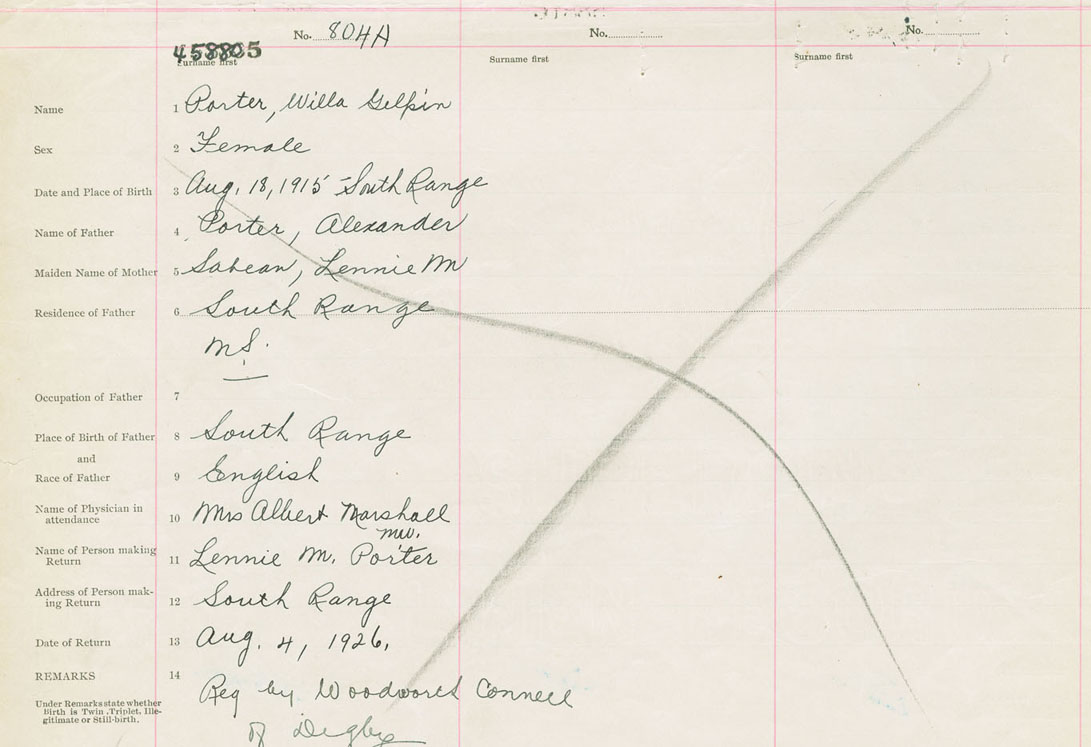 No. 804A No. No.
458805
Surname first Surname first Surname first
Name 1 Porter, Willa Gilpin
Sex 2 Female
Date and Place of Birth 3 Aug. 18, 1915 - South Range
Name of Father 4 Porter, Alexander
Maiden Name of Mother 5 Sabean, Lennie M
Residence of Father 6 South Range
Occupation of Father 7
Place of Birth of Father 8 South Range
and
Race of Father 9 English
Name of Physician in
attendance 10 Mrs Albert Marshall
mw.
Name of Person making
Return 11 Lennie M. Porter
Address of Person mak-
ing Return 12 South Range
Date of Return 13 Aug. 4, 1926.
REMARKS 14
Reg by Woodworth Connell
Under Remarks state whether
Birth is Twin, Triplet, Ille-
gitimate or Still-birth.
of Digby